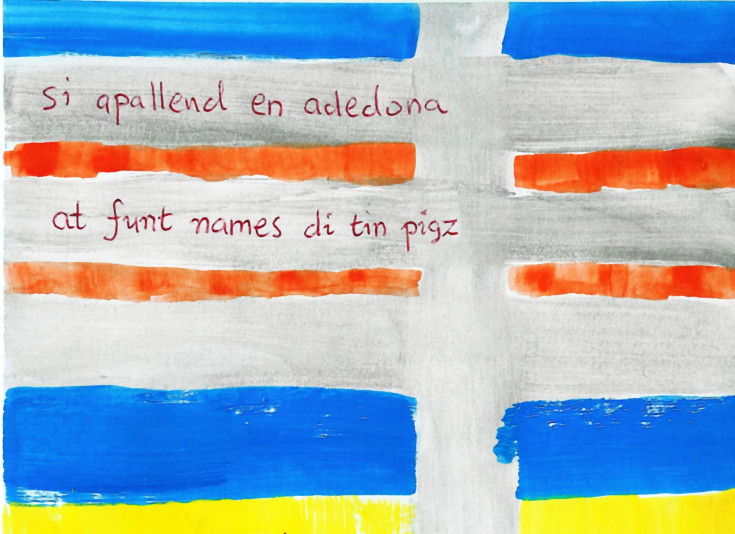 si apallend en adedona
at funt names di tin pigz